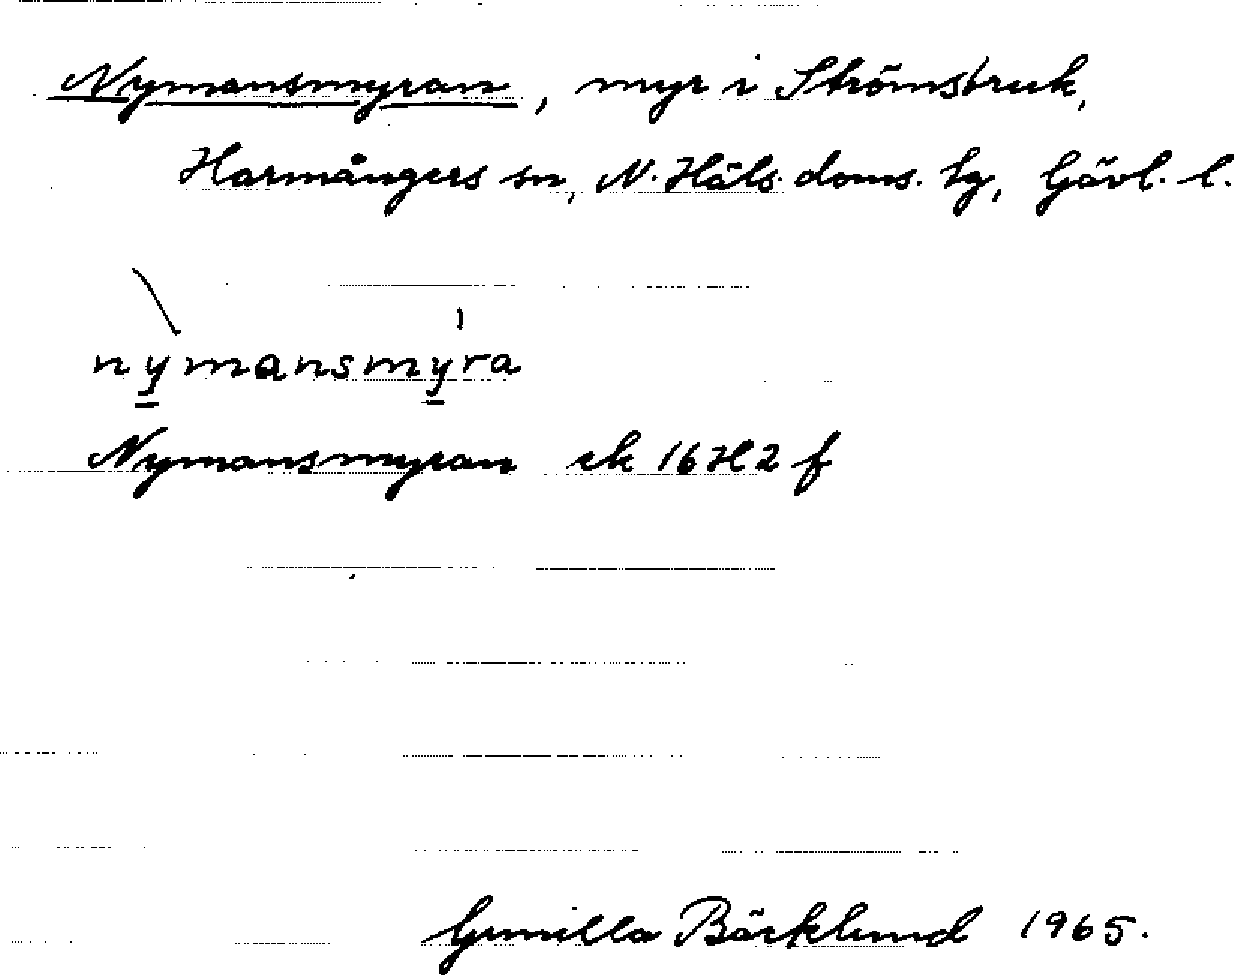 Nymansmyran, myr i Strömsbruk,
Harmångers sn, N. Häls. doms. hg, Gävl. l.
nymansmyra
Nymansmyran ek 16H2f
Gunilla Bäcklund 1965.